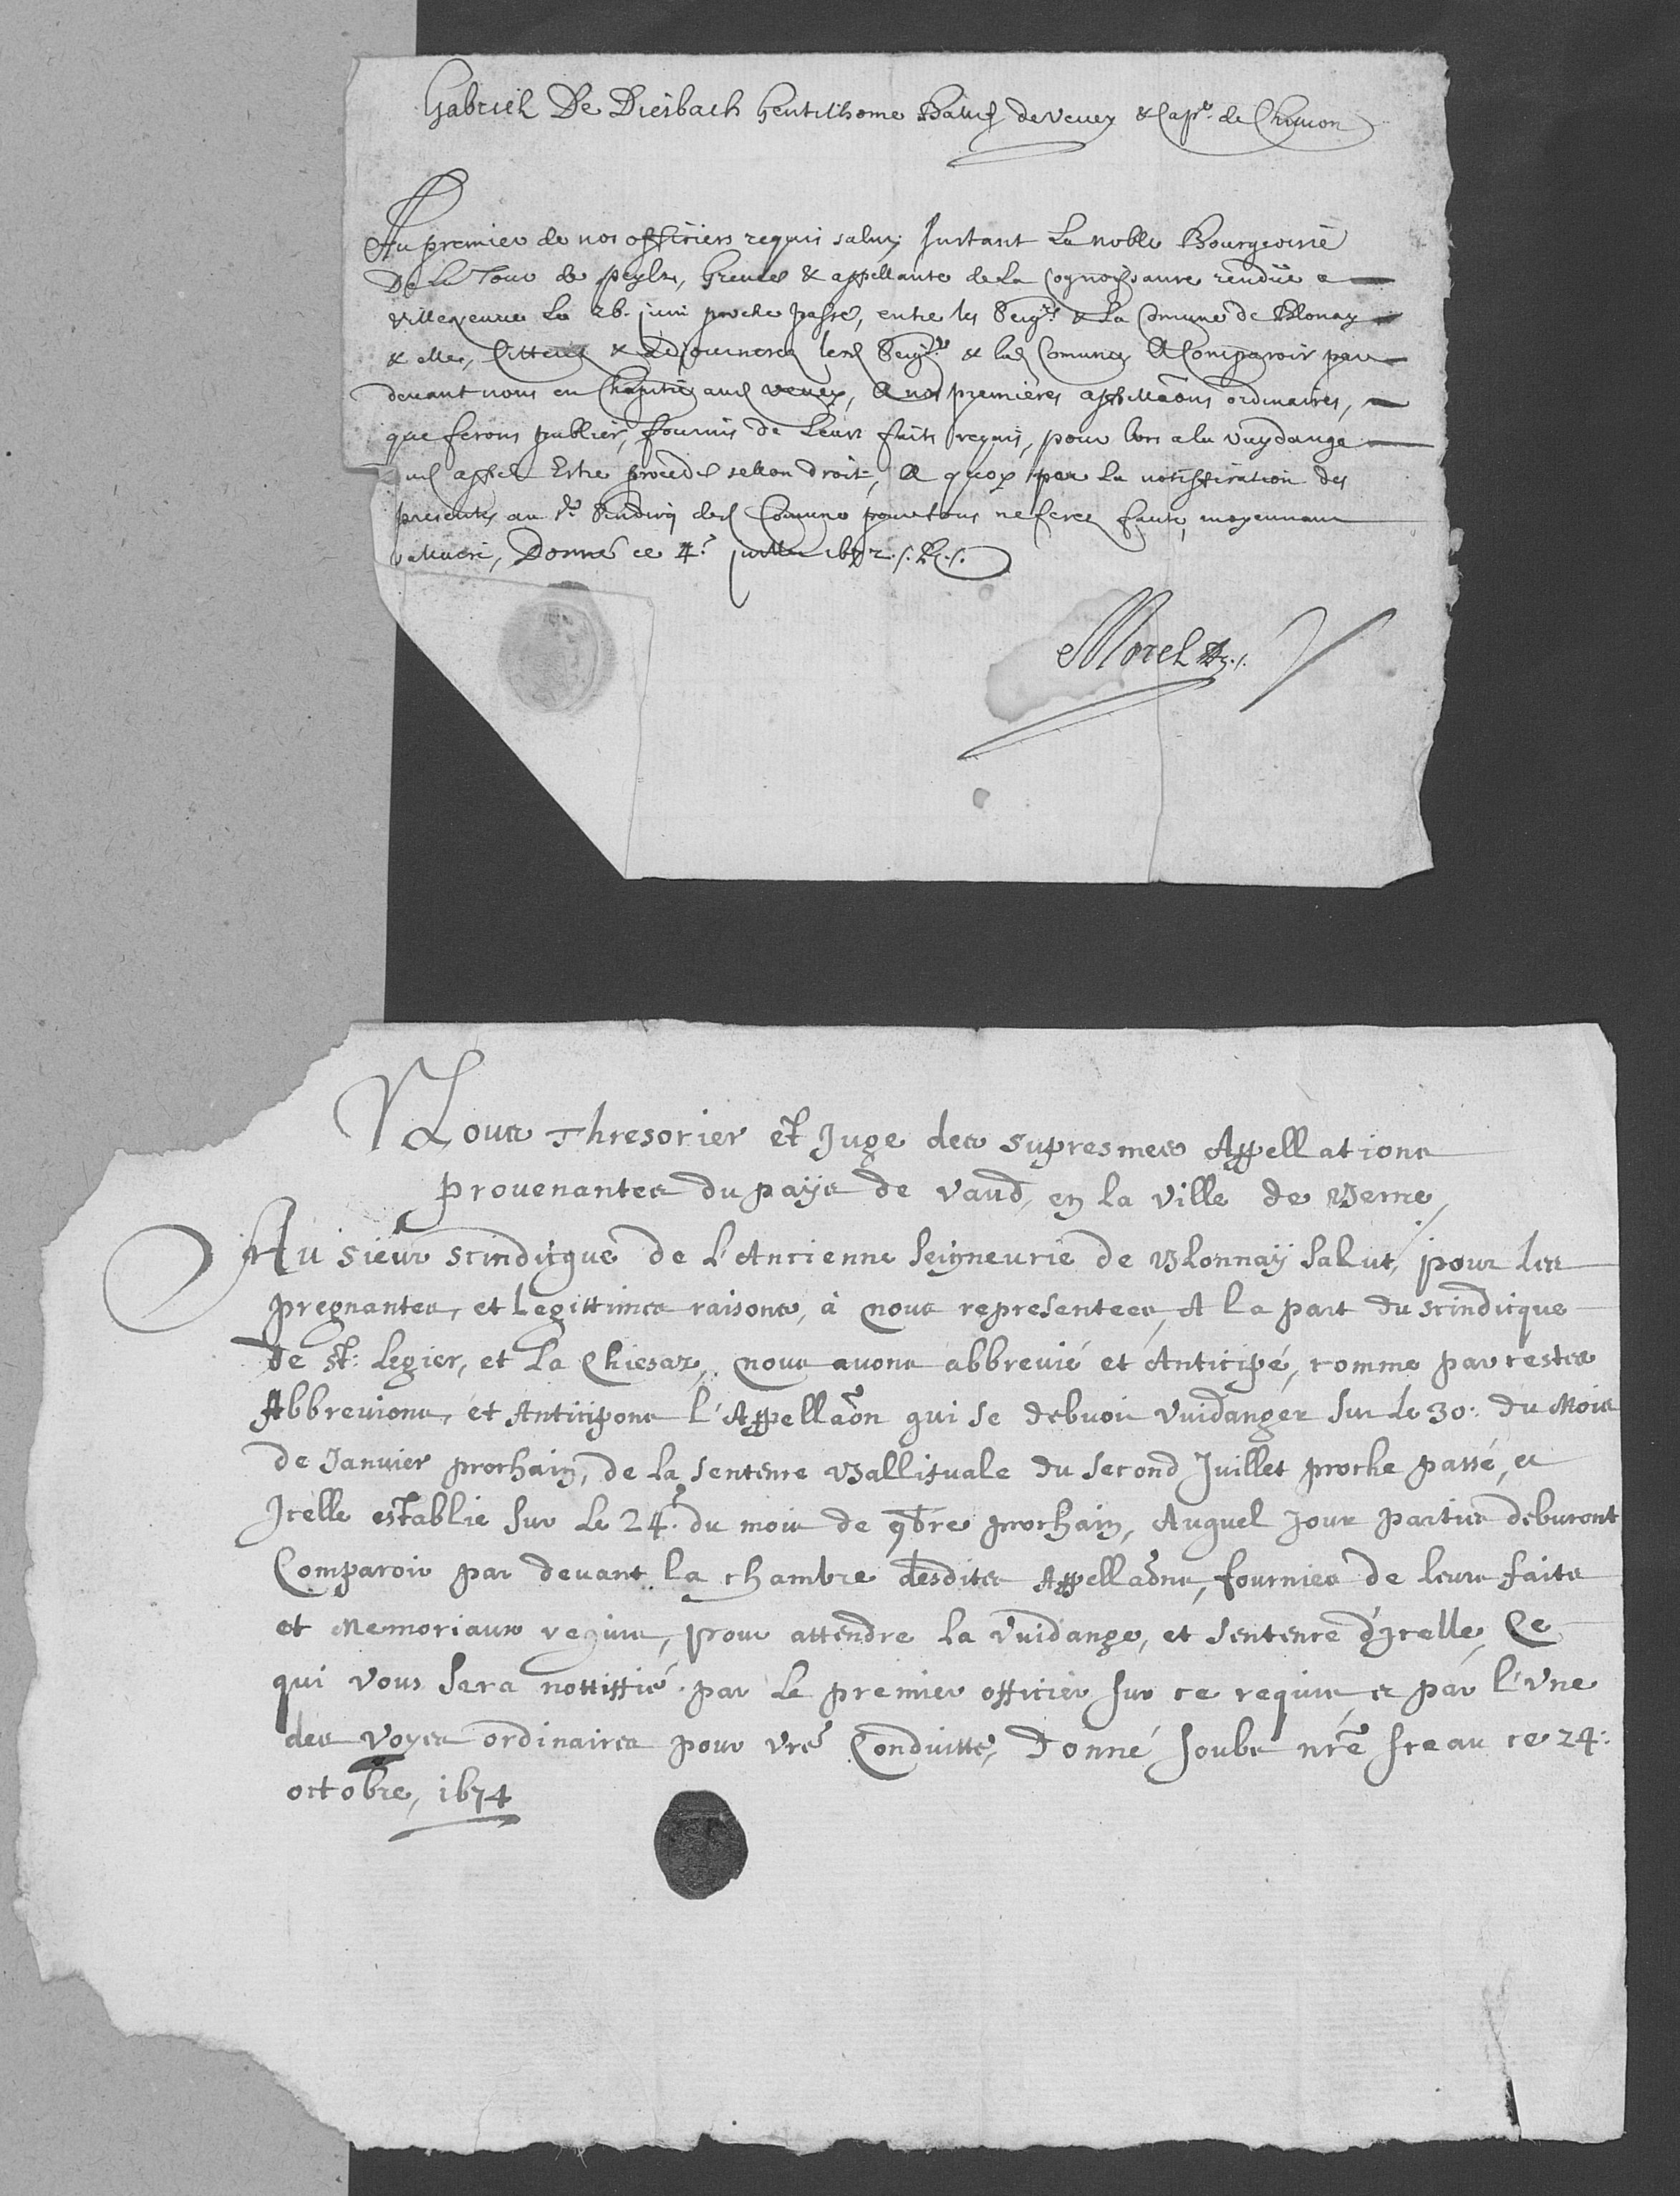 Gabriel De Diesbach Gentilhome Baillif de Vevey & Capne de Chillion
Au premier de nos officiers requis salut, Instant La noble Bourgeoisie
De La Tour de peylz, Greuée & appellante de La Cognoissance rendüe a
Villeneuve Le 26. juin proche passé, entre les Seigrs & La Comune de Blonay
& elle, Citterez & Adjournerez lesd Seigrs & lad Comune A Comparoir par
devant nous en Chapitre aud Vevey, A nos premieres appellaõns ordinaires,
que ferons publier, fournis de Leurs faits requis, pour lors a la vuydange
dud appel Estre procedé sellon droit, A quoy par La notiffication des
presentes au Sr Sindicq de lad Comune pour tous ne ferez faute, moyennant
Donné ce 4e juillet 1672
Morel
Nous Thresorier et Juge des supresmes Appellations
provenantes du pays de Vaud, en la ville de Berne,
Au sieur scindicque de L'Ancienne Seigneurie de Blonnaÿ Salut, pour les
pregnantes, et Legittimes raisons, à nous representees, A la part du scindicque
de St: Legier, et La Chiesaz, nous avons abbrevié et Anticipé, comme par cestes
Abbrevions, et Anticipons L'Appellaõn qui se debvoir vuidanger sur le 30: du Mois
de Janvier prochain, de la sentence Ballivale du second Juillet proche passé, et
Jcelle establie sur Le 24.e du mois de 9bre prochain, Auquel Jour parties debvront
Comparoir par devant la chambre desdites Appellaõns, fournies de leurs faits
et Memoriaux requis, pour attendre la vuidange, et sentence d'Jcelle, Ce
qui vous sera nottiffié par Le premier officier sur ce requis, et par l'vne
des voyes ordinaires pour vrẽ Conduitte, Donné soubs nrẽ sceau ce 24:
octobre, 1674